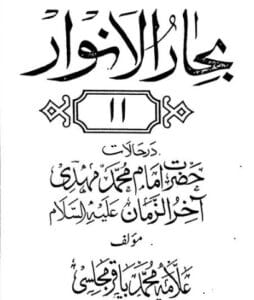 بحار الانوار
۱۱
در حالات
حضرت امام محمد مہدی
آخر الزمان علیہ السلام
مؤلف
علامہ محمد باقر مجلسی